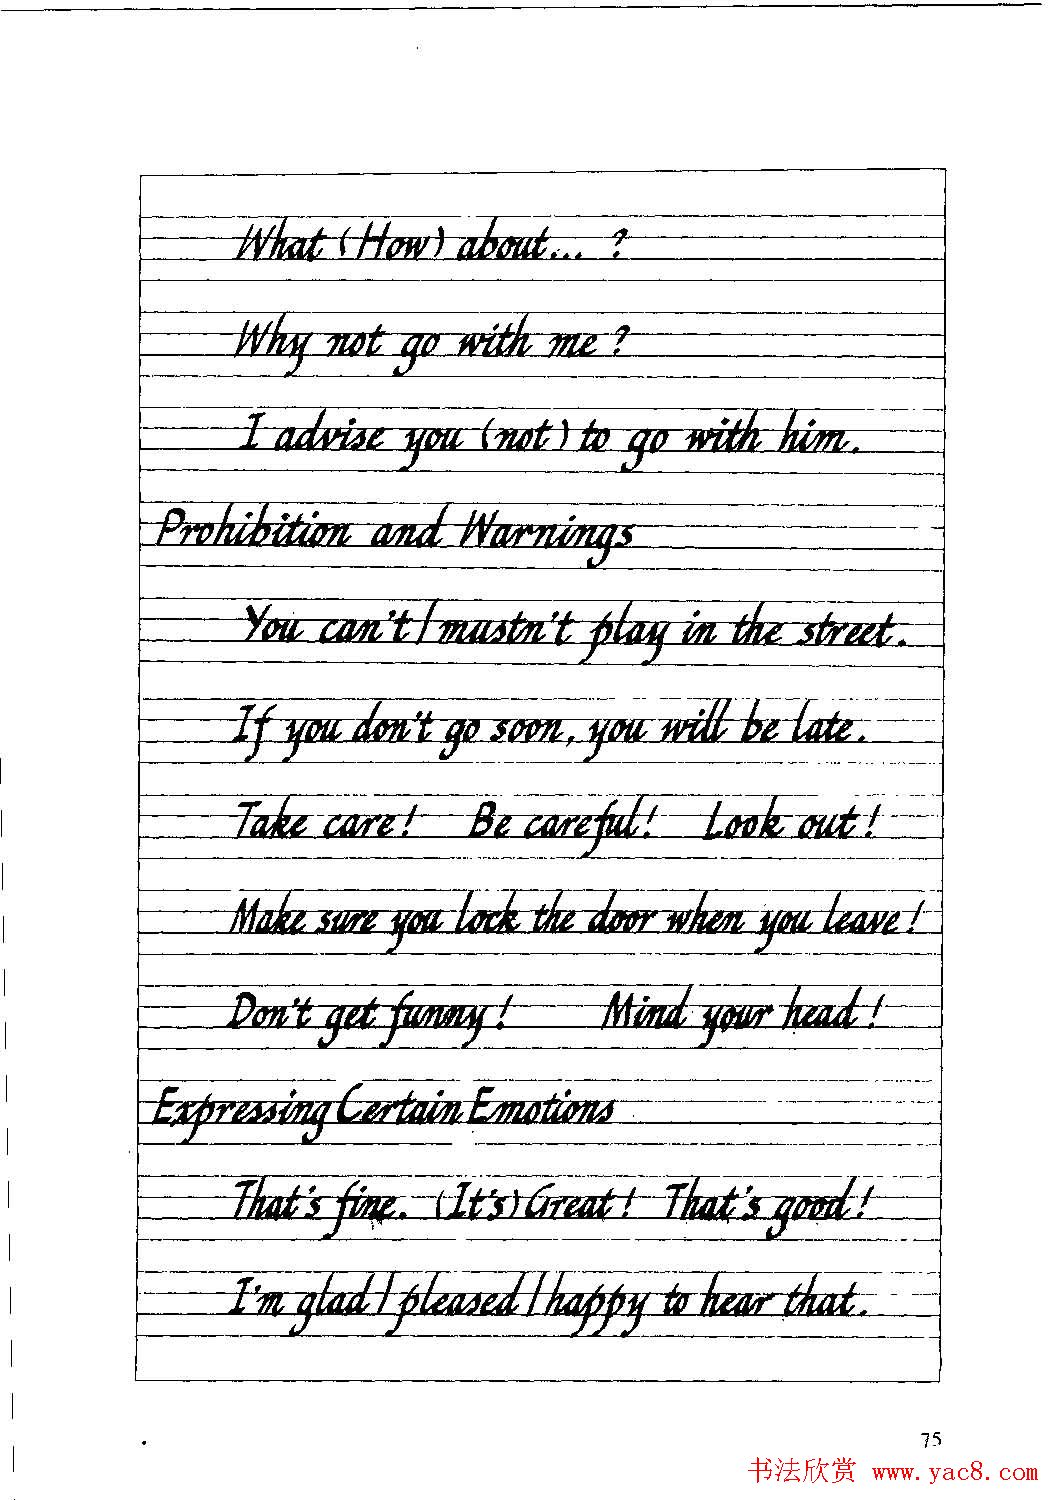 What (How) about... ?
Why not go with me ?
I advise you (not) to go with him.
Prohibition and Warnings
You can't / mustn't play in the street.
If you don't go soon, you will be late.
Take care! Be careful! Look out!
Make sure you lock the door when you leave!
Don't get funny! Mind your head!
Expressing Certain Emotions
That's fine. (It's) Great! That's good!
I'm glad / pleased / happy to hear that.
75
书法欣赏 www.yac8.com